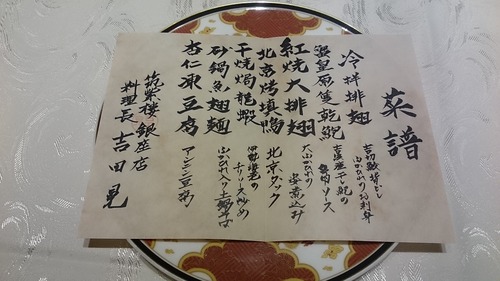 菜譜
冷拌排翅
吉切鮫背びれ
ふかひれのお刺身
蟹皇原隻乾鮑
吉濱産干し鮑の
蟹肉ソース
紅焼大排翅
大ふかひれの
姿煮込み
北京烤填鴨
北京ダック
干焼焗龍蝦
伊勢海老の
チリソース炒め
砂鍋魚翅麺
ふかひれ入り土鍋そば
杏仁凍豆腐
アンニン豆腐
筑紫樓銀座店
料理長 吉田晃